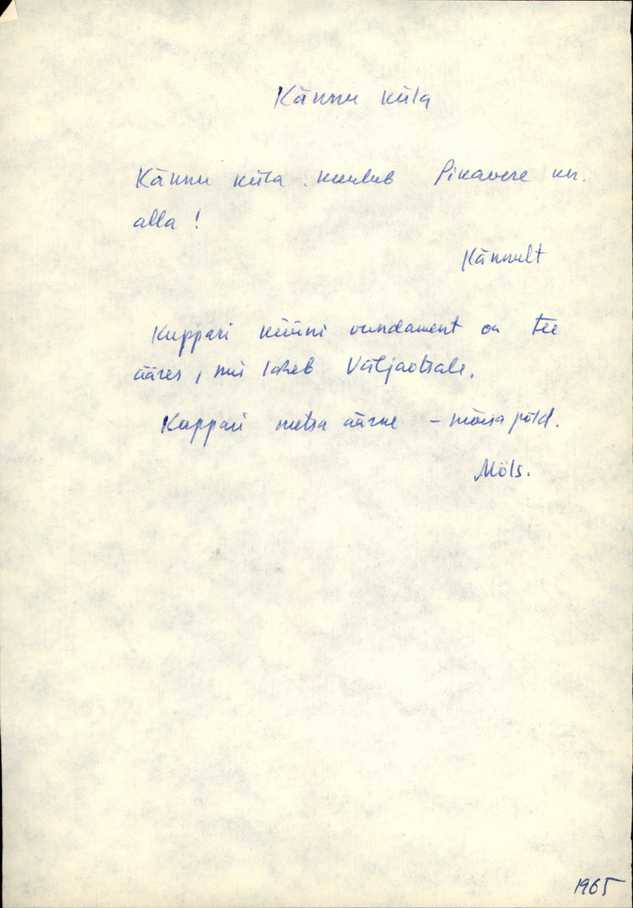 Kännu küla
Kännu küla kuulub Pikavere kn.
alla!
Kännult
Kuppari küüni vundament on tee
ääres, mis läheb Väljaotsale.
Kuppari metsa äärne – mõisa põld.
Möls.
1965